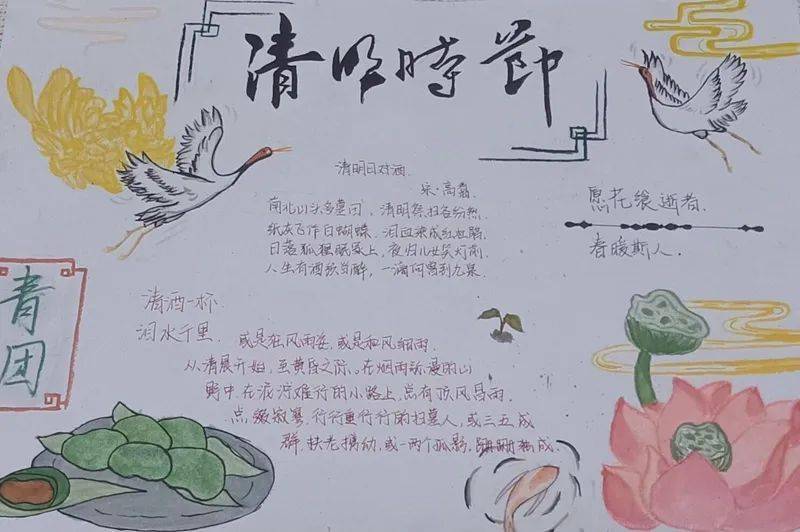 清明時節
清明日对酒
宋·高翥
南北山头多墓田，清明祭扫各纷然。
纸灰飞作白蝴蝶，泪血染成红杜鹃。
日落狐狸眠冢上，夜归儿女笑灯前。
人生有酒须当醉，一滴何曾到九泉。
愿花飨逝者
春暖斯人.
青团
清酒一杯
泪水千里.
或是狂风雨骤，或是和风细雨.
从清晨开始，至黄昏之际。在烟雨弥漫的山
野中.在泥泞难行的小路上，总有顶风冒雨.
点缀寂寞，行行重行行的扫墓人，或三五成
群.扶老携幼，或一两个孤影，